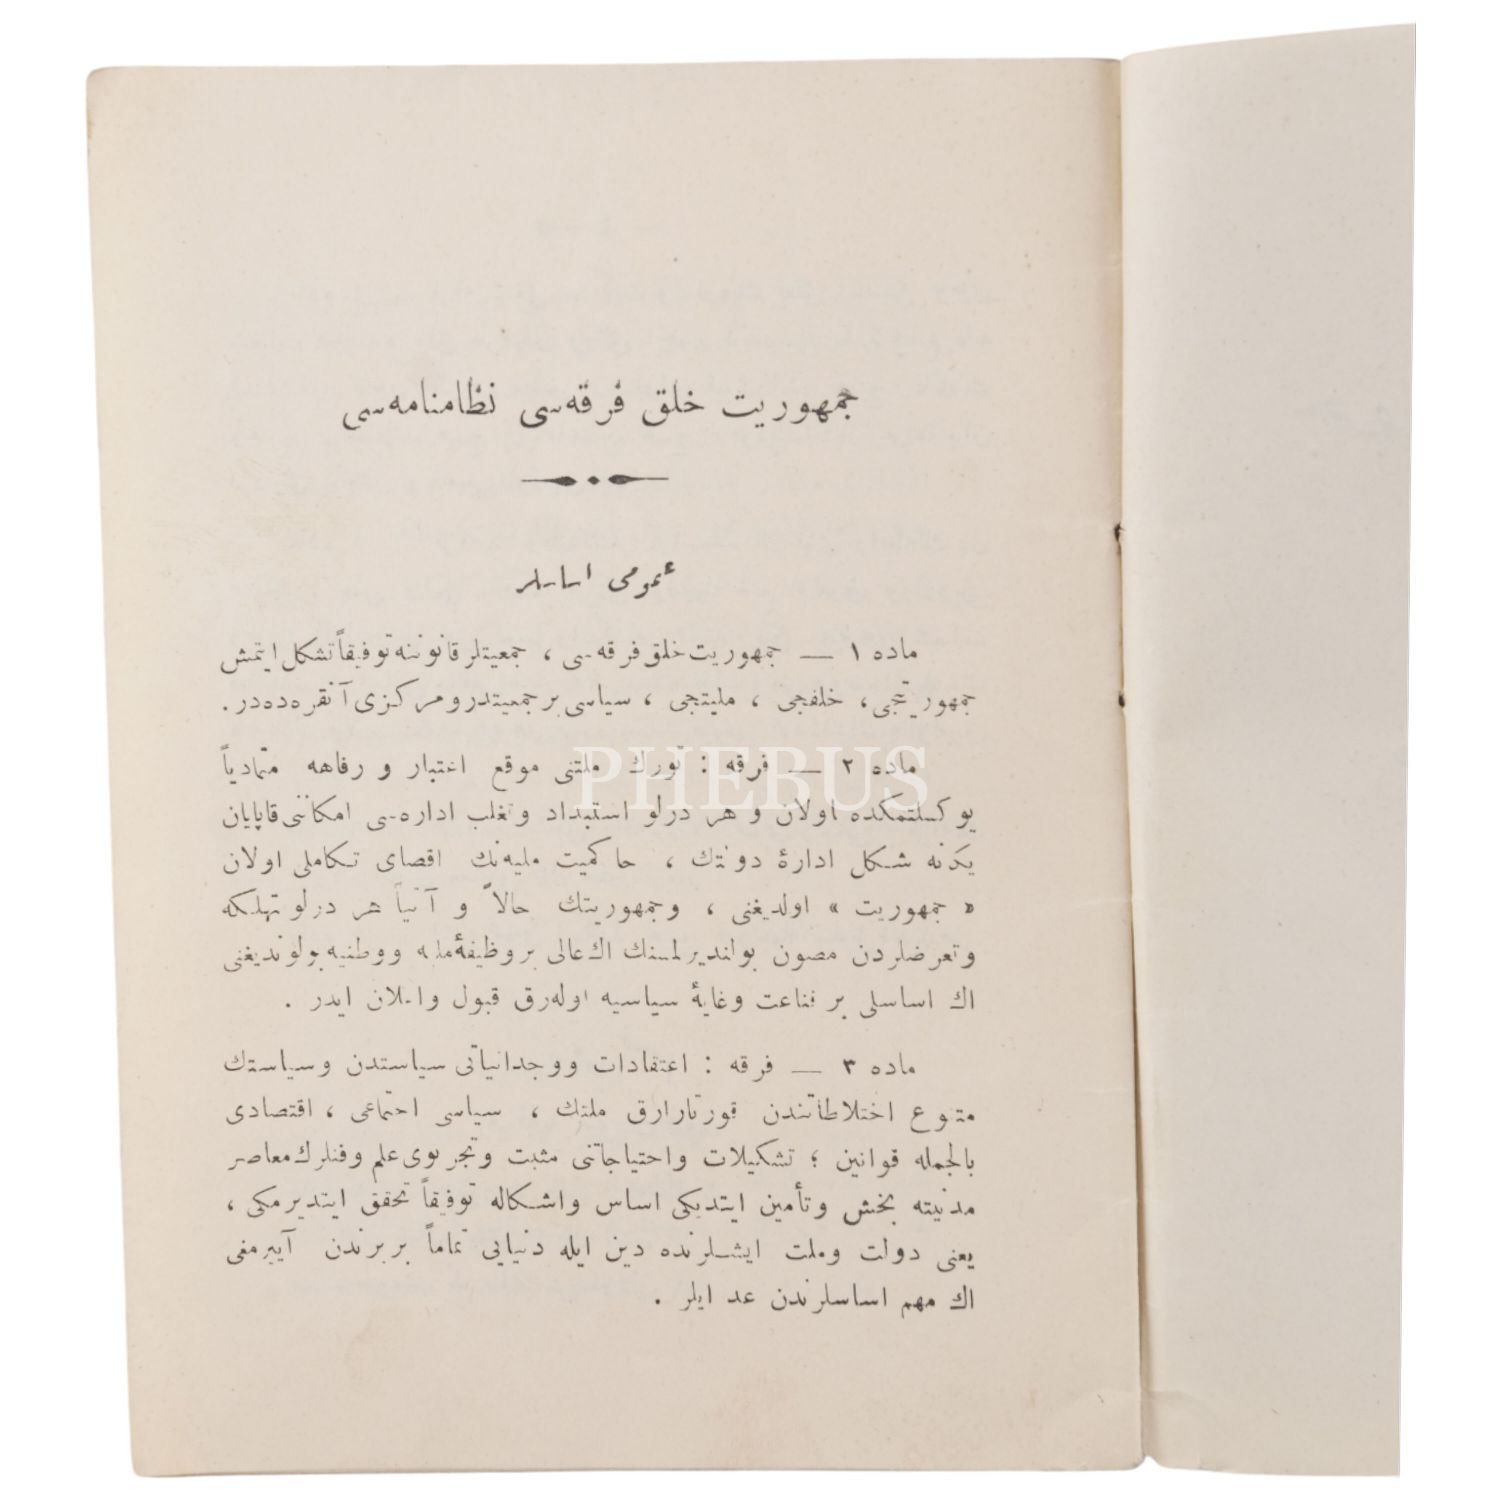 جمهوریت خلق فرقه‌سی نظامنامه‌سی
عمومی اساسلر
ماده ١ — جمهوریت خلق فرقه‌سی ، جمعیتلر قانوننه توفیقاً تشکل ایتمش
جمهوریتجی ، خلقجی ، ملیتجی ، سیاسی بر جمعیتدر و مرکزی آنقره‌ده‌در .
ماده ٢ — فرقه : تورك ملتنی موقع اعتبار و رفاهه متمادیاً
یوکسلتمکده اولان و هر درلو استبداد و تغلب اداره‌سی امکاننی قاپایان
یکانه شکل ادارۀ دولتك ، حاکمیت ملیه‌نك اقصای تکاملی اولان
« جمهوریت » اولدیغنی ، وجمهوریتك حالاً و آتیاً هر درلو تهلکه
وتعرضلردن مصون بولندیرلمسنك اك عالی بر وظیفۀ ملیه ووطنیه بولوندیغنی
اك اساسلی بر قناعت وغایۀ سیاسیه اوله‌رق قبول واعلان ایدر .
ماده ٣ — فرقه : اعتقادات ووجدانیاتی سیاستدن وسیاستك
متنوع اختلاطاتندن قورتارارق ملتك ، سیاسی اجتماعی ، اقتصادی
بالجمله قوانین ؛ تشکیلات واحتیاجاتنی مثبت وتجربوی علم وفنلرك معاصر
مدنیته بخش وتأمین ایتدیکی اساس واشکاله توفیقاً تحقق ایتدیرمکی ،
یعنی دولت وملت ایشلرنده دین ایله دنیایی تماماً بربرندن آییرمغی
اك مهم اساسلرندن عد ایلر .
PHEBUS